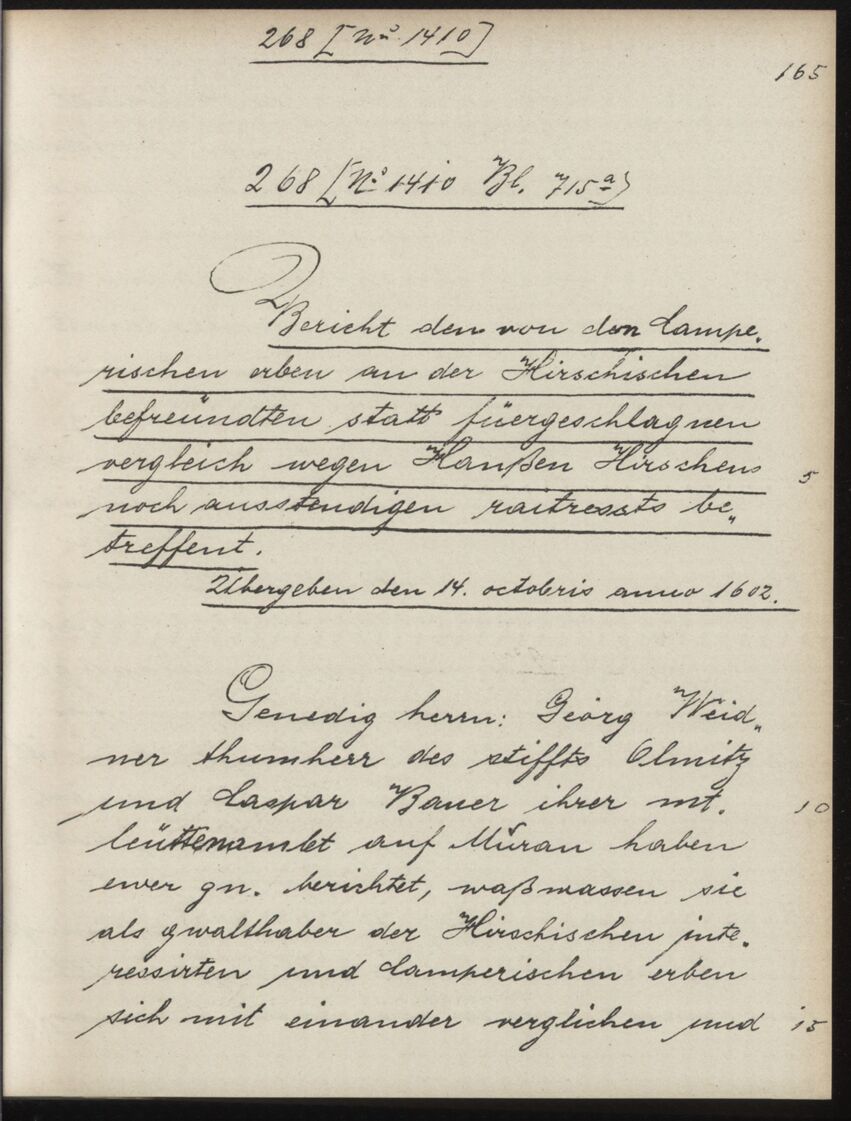 268 [No. 1410]
165
268 [No 1410 Bl. 715a]
Bericht den von den Lampe„
rischen erben an der Hirschischen
befreündten statt füergeschlagnen
vergleich wegen Hanßen Hirschens
5
noch ausstendigen raitressts be„
treffent.
Übergeben den 14. octobris anno 1602.
Genedig herrn: Georg Weid„
ner thumherr des stiffts Olmitz
und Caspar Bauer ihrer mt.
10
leüttenambt auf Muran haben
ewer gn. berichtet, waßmassen sie
als gwalthaber der Hirschischen inte„
ressirten und Lamperischen erben
sich mit einander verglichen und
15